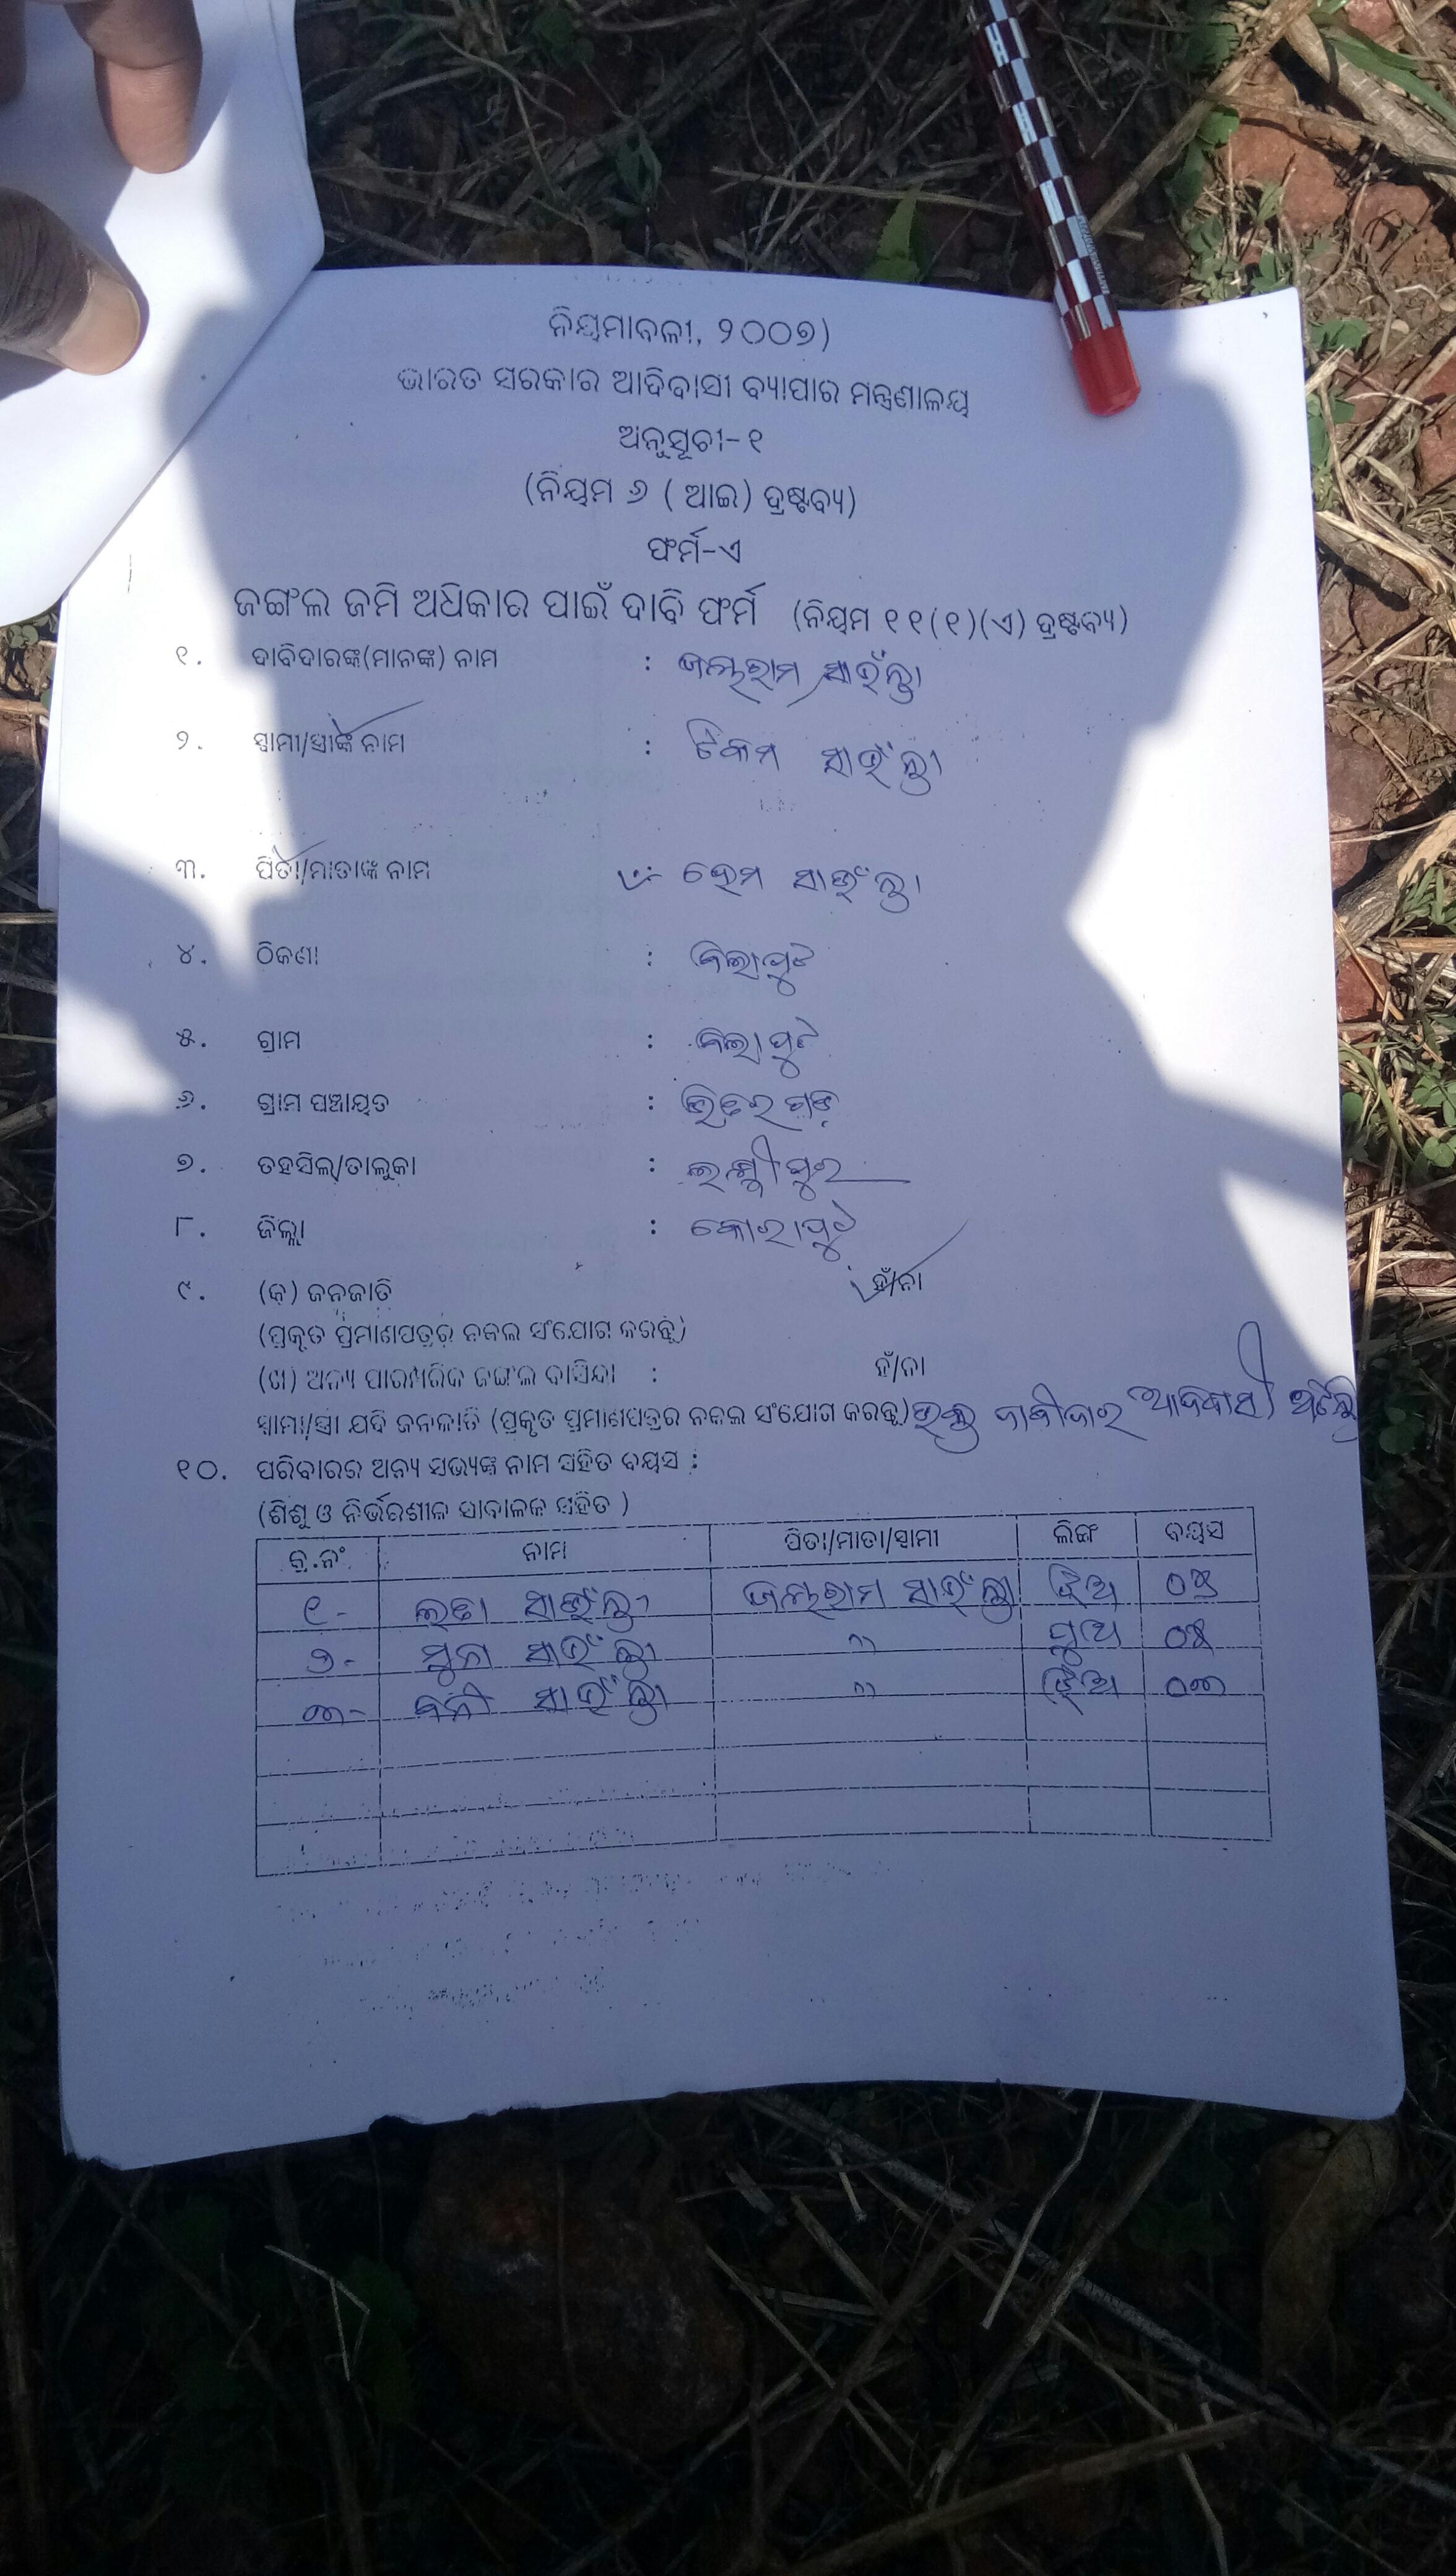 ନିୟମାବଳୀ, ୨୦୦୭)
ଭାରତ ସରକାର ଆଦିବାସୀ ବ୍ୟାପାର ମନ୍ତ୍ରଣାଳୟ
ଅନୁସୂଚୀ-୧
(ନିୟମ ୬ ( ଆଇ) ଦ୍ରଷ୍ଟବ୍ୟ)
ଫର୍ମ-ଏ
ଜଙ୍ଗଲ ଜମି ଅଧିକାର ପାଇଁ ଦାବି ଫର୍ମ (ନିୟମ ୧୧(୧)(ଏ) ଦ୍ରଷ୍ଟବ୍ୟ)
୧. ଦାବିଦାରଙ୍କ(ମାନଙ୍କ) ନାମ : ଜଲ୍ଲରାମ ସାଇଁଲ୍ଲା
୨. ସ୍ୱାମୀ/ସ୍ତ୍ରୀଙ୍କ ନାମ : ଟିକମ ସାଇଁଲ୍ଲା
୩. ପିତା/ମାତାଙ୍କ ନାମ : ହେମ ସାଇଁଲ୍ଲା
୪. ଠିକଣା : ଜିଲାପୁଟ
୫. ଗ୍ରାମ : ଜିଲାପୁଟ
୬. ଗ୍ରାମ ପଞ୍ଚାୟତ : ଭିତରଗଡ଼
୭. ତହସିଲ୍/ତାଲୁକା : ଲକ୍ଷ୍ମୀପୁର
୮. ଜିଲ୍ଲା : କୋରାପୁଟ
୯. (କ) ଜନଜାତି ହଁ/ନା
(ପ୍ରକୃତ ପ୍ରମାଣପତ୍ରର ନକଲ ସଂଯୋଗ କରନ୍ତୁ)
(ଖ) ଅନ୍ୟ ପାରମ୍ପରିକ ଜଙ୍ଗଲ ବାସିନ୍ଦା : ହଁ/ନା
ସ୍ୱାମୀ/ସ୍ତ୍ରୀ ଯଦି ଜନଜାତି (ପ୍ରକୃତ ପ୍ରମାଣପତ୍ରର ନକଲ ସଂଯୋଗ କରନ୍ତୁ) ଉକ୍ତ ଦାବୀଦାର ଆଦିବାସୀ ଅଟନ୍ତି
୧୦. ପରିବାରର ଅନ୍ୟ ସଭ୍ୟଙ୍କ ନାମ ସହିତ ବୟସ :
(ଶିଶୁ ଓ ନିର୍ଭରଶୀଳ ସାବାଳକ ସହିତ )
କ୍ର.ନଂ ନାମ ପିତା/ମାତା/ସ୍ୱାମୀ ଲିଙ୍ଗ ବୟସ
୧- ଲତା ସାଇଁଲ୍ଲା ଜଲ୍ଲରାମ ସାଇଁଲ୍ଲା ଝିଅ ୦୫
୨- ମୁନା ସାଇଁଲ୍ଲା " ପୁଅ ୦୪
୩- ବନୀ ସାଇଁଲ୍ଲା " ଝିଅ ୦୩